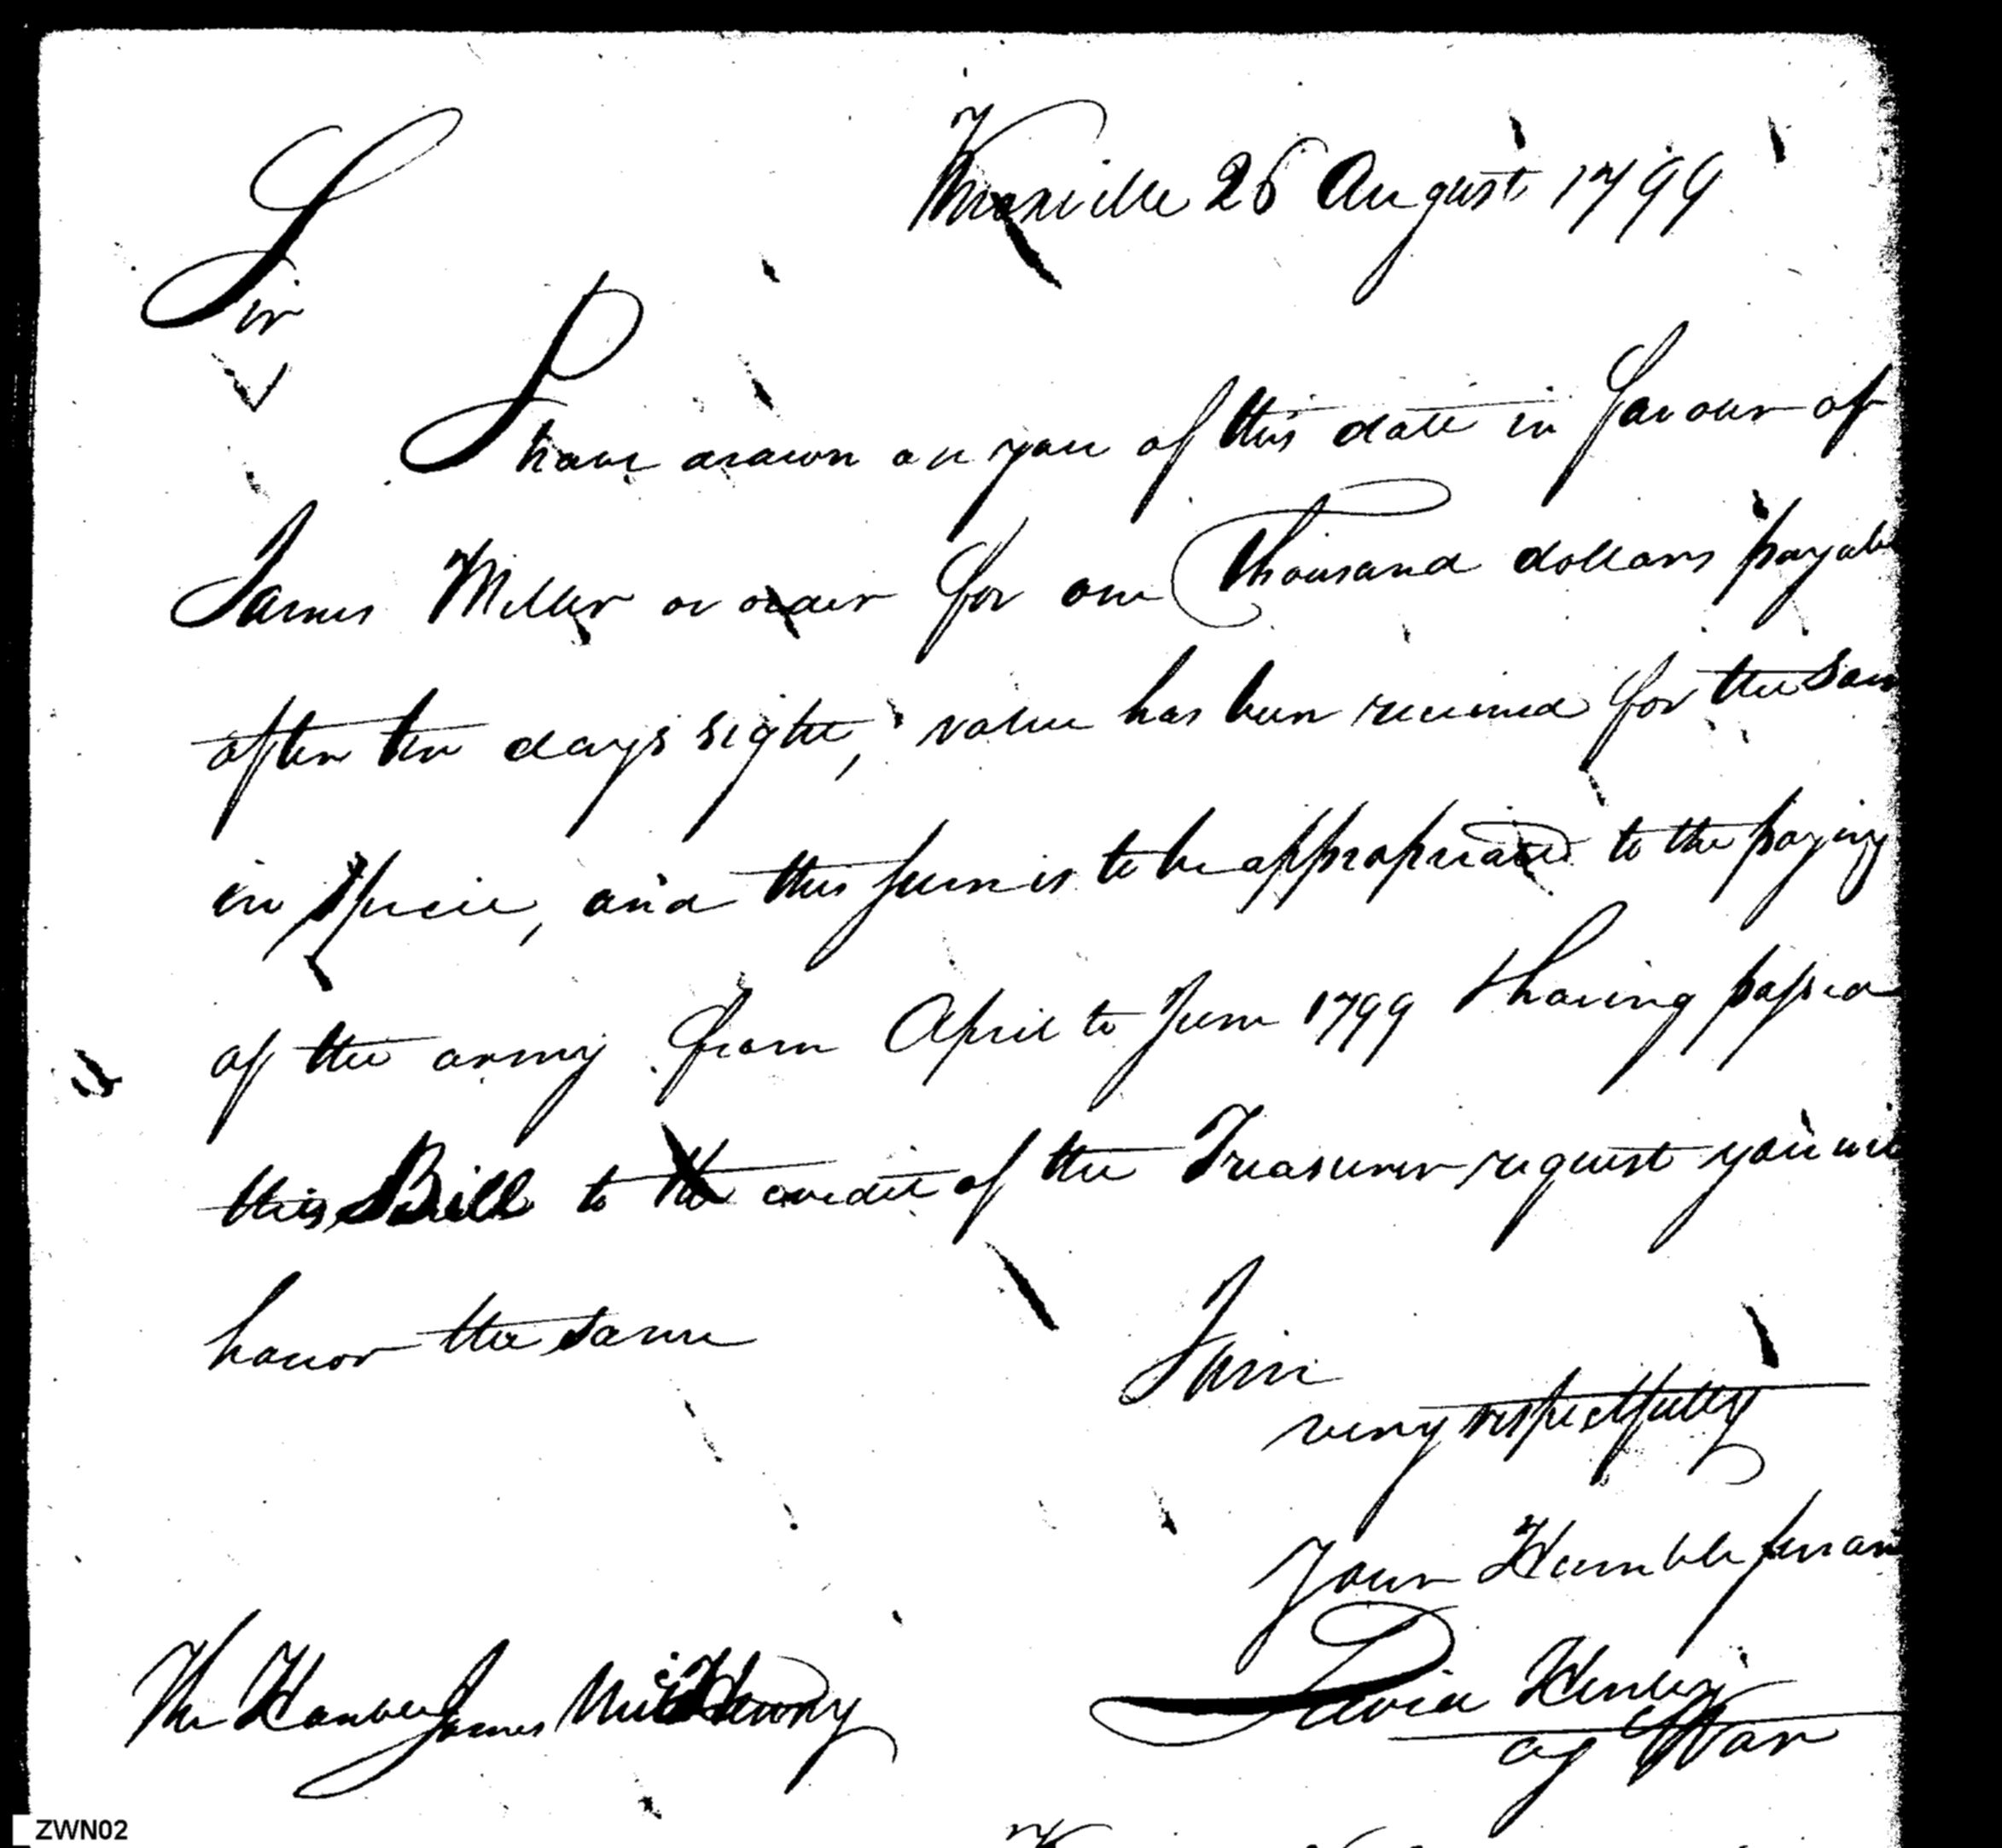 Knoxville 26 August 1799
Sir
I have drawn on you of this date in favour of
James Miller or order for one Thousand dollars payabl
after ten days sight, value has been received for the sam
in Specie, and this sum is to be appropriated to the paying
of the army from April to June 1799 & having passed
this Bill to the credit of the Treasurer request you wil
honor the same
I am
very respectfully
Your Humble servan
David Henley
ag War
The Honble James McHenry
ZWN02